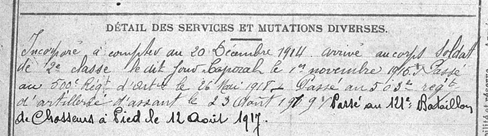 DÉTAIL DES SERVICES ET MUTATIONS DIVERSES.
Incorporé à compter du 20 Décembre 1914 arrivé au corps Soldat
de 2e classe le dit jour Caporal le 1er novembre 1916. Passé
au 500e Régt d'Artie le 26 Mai 1918 Passé au 503e régt
d'artillerie d'assaut le 23 Août Passé au 121e Bataillon
de Chasseurs à Pied le 12 Août 1917.